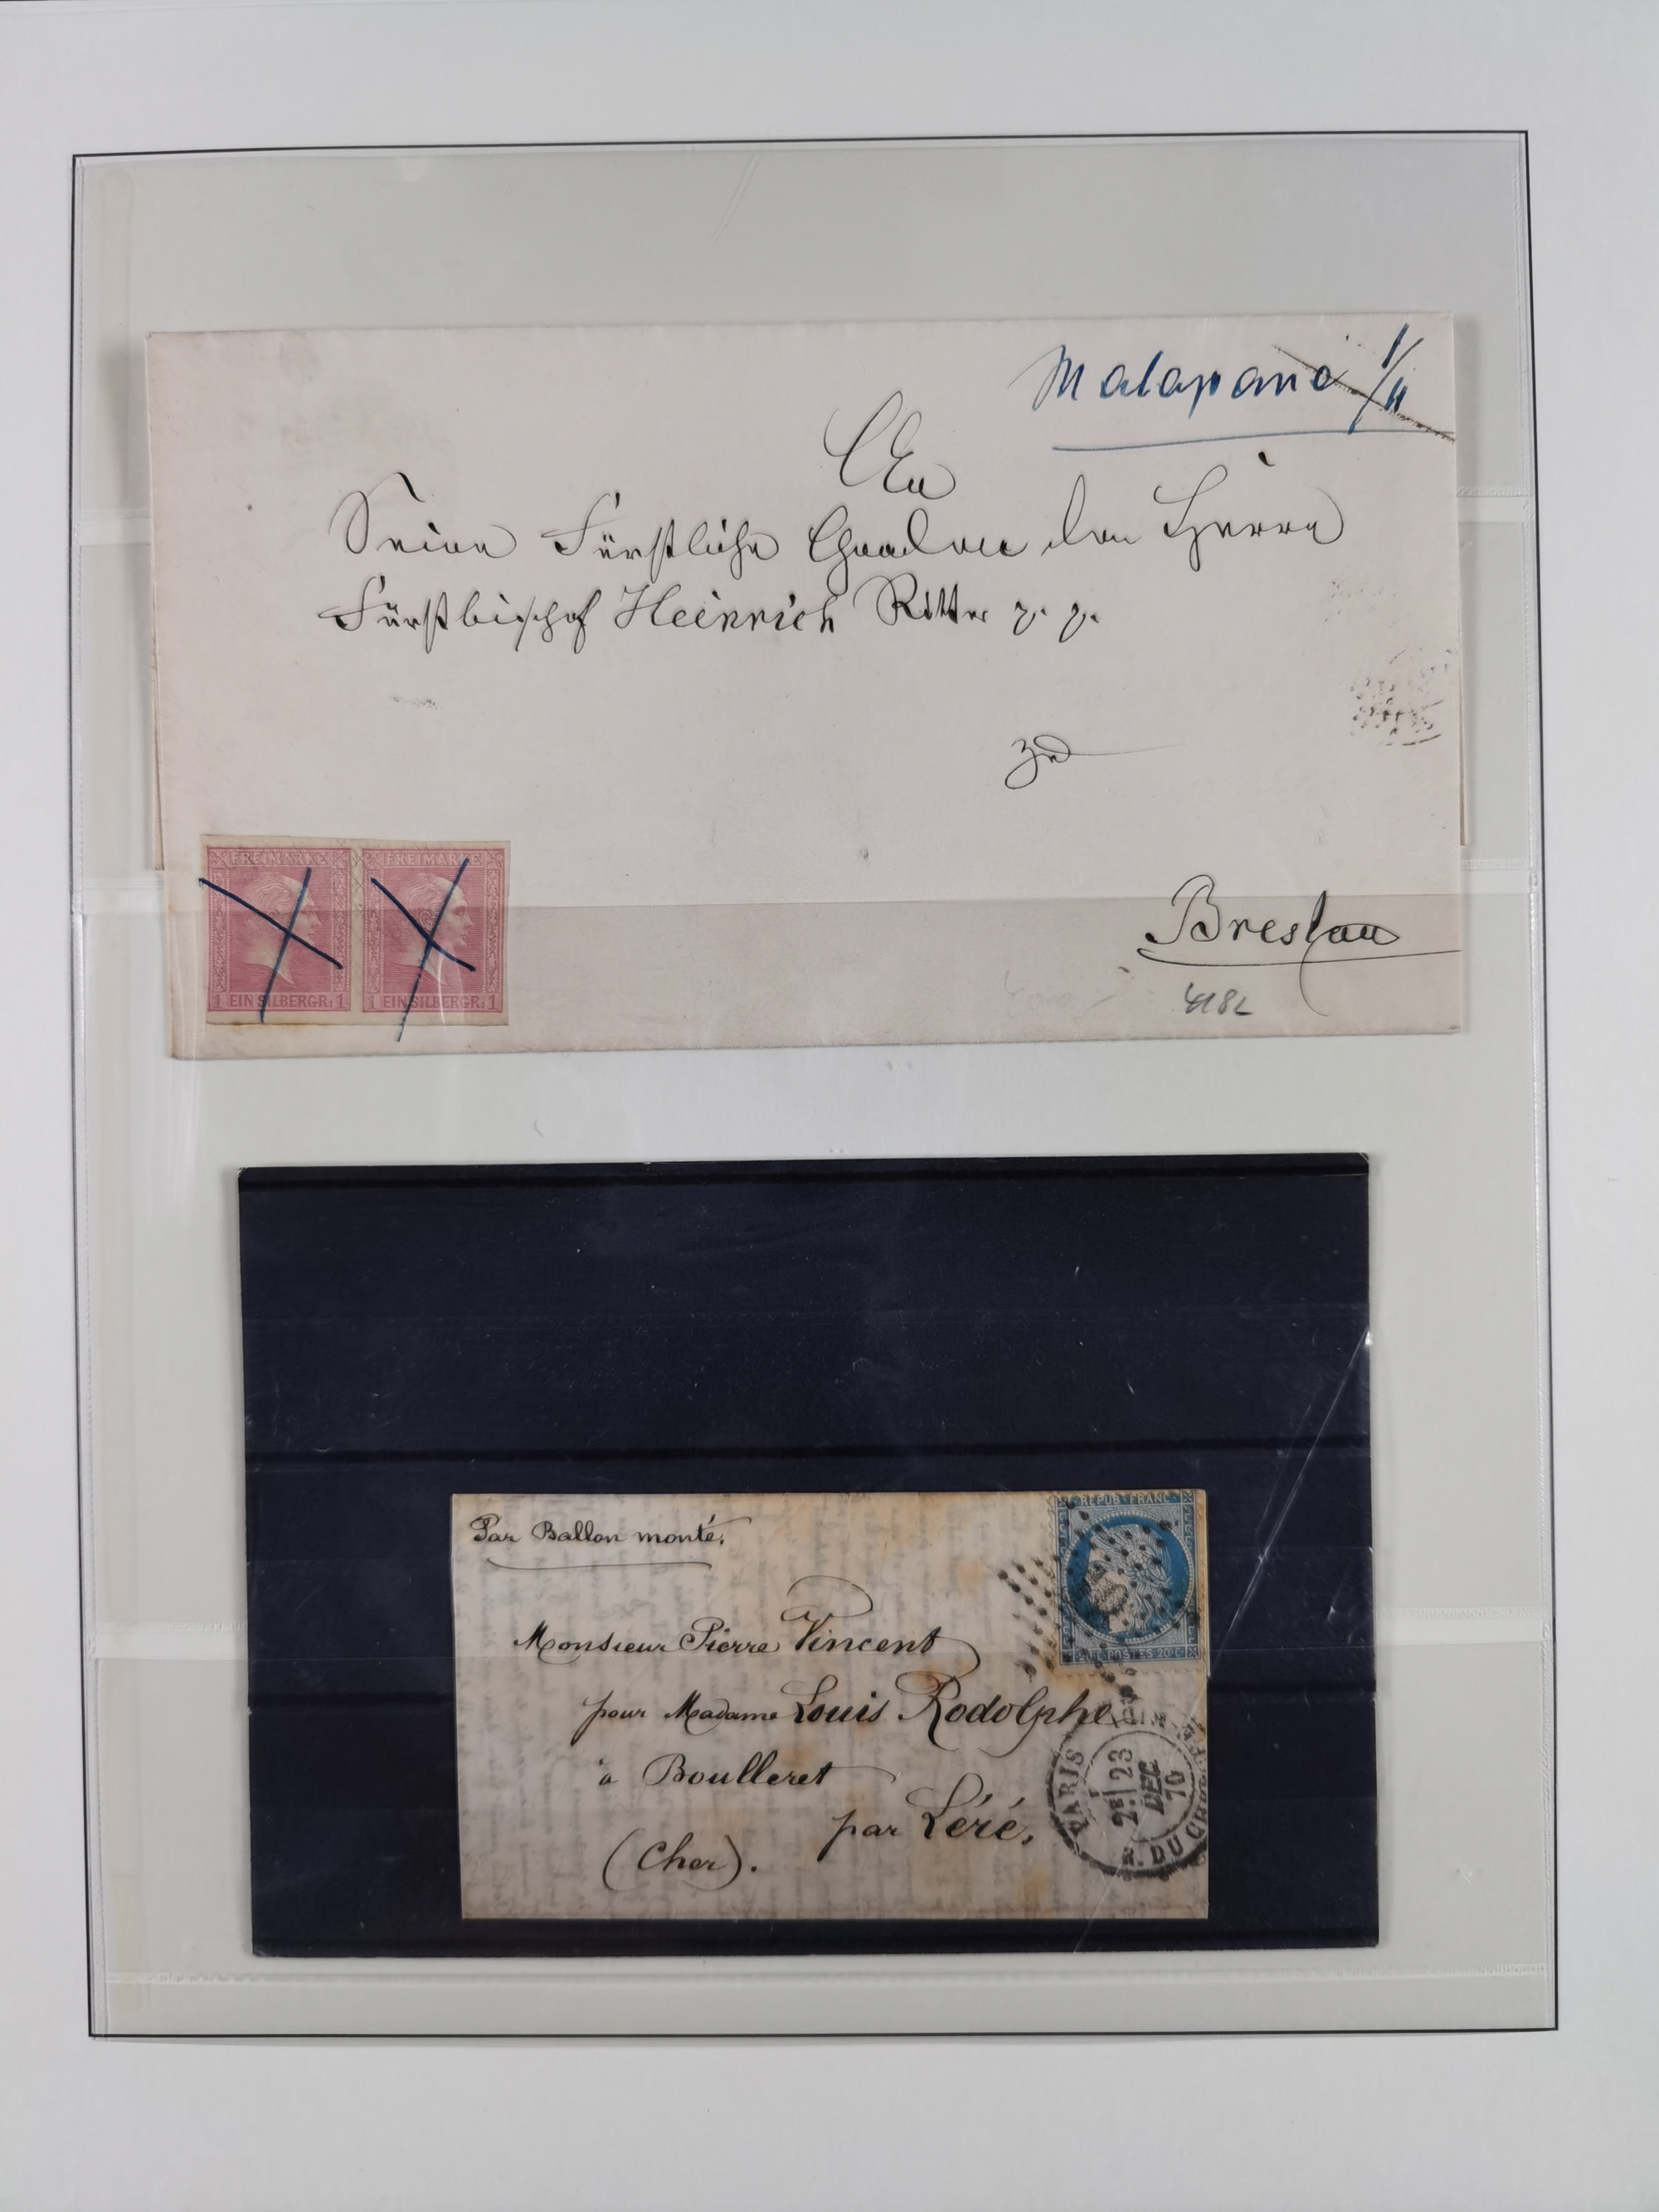 Malapane 1/11
An
Seine Fürstliche Gnaden den Herrn
Fürstbischof Heinrich Ritter p. p.
zu
Breslau
FREIMARKE FREIMARKE
1 EIN SILBERGR: 1 1 EIN SILBERGR: 1
Par Ballon monté.
REPUB·FRANC·
20·C·POSTES·20·C·
Monsieur Pierre Vincent
pour Madame Louis Rodolphe
à Boulleret
par Léré,
(Cher).
PARIS
2E 23
DEC
70
R. DU